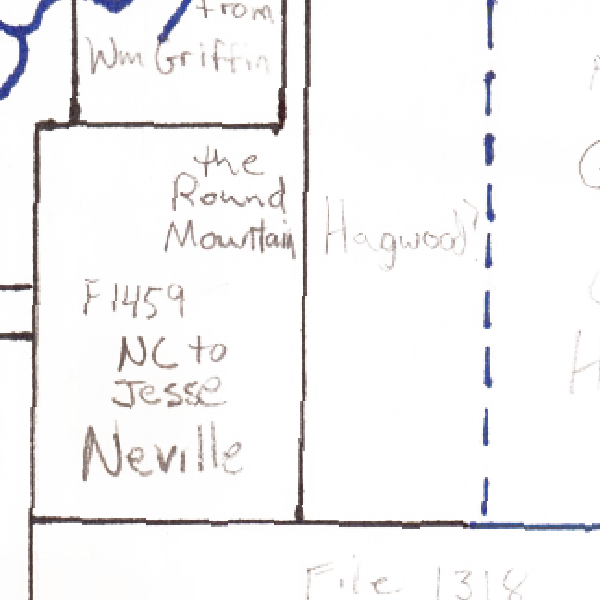 from
Wm Griffin
the
Round
Mountain
Hagwood?
F1459
NC to
Jesse
Neville
File 1318